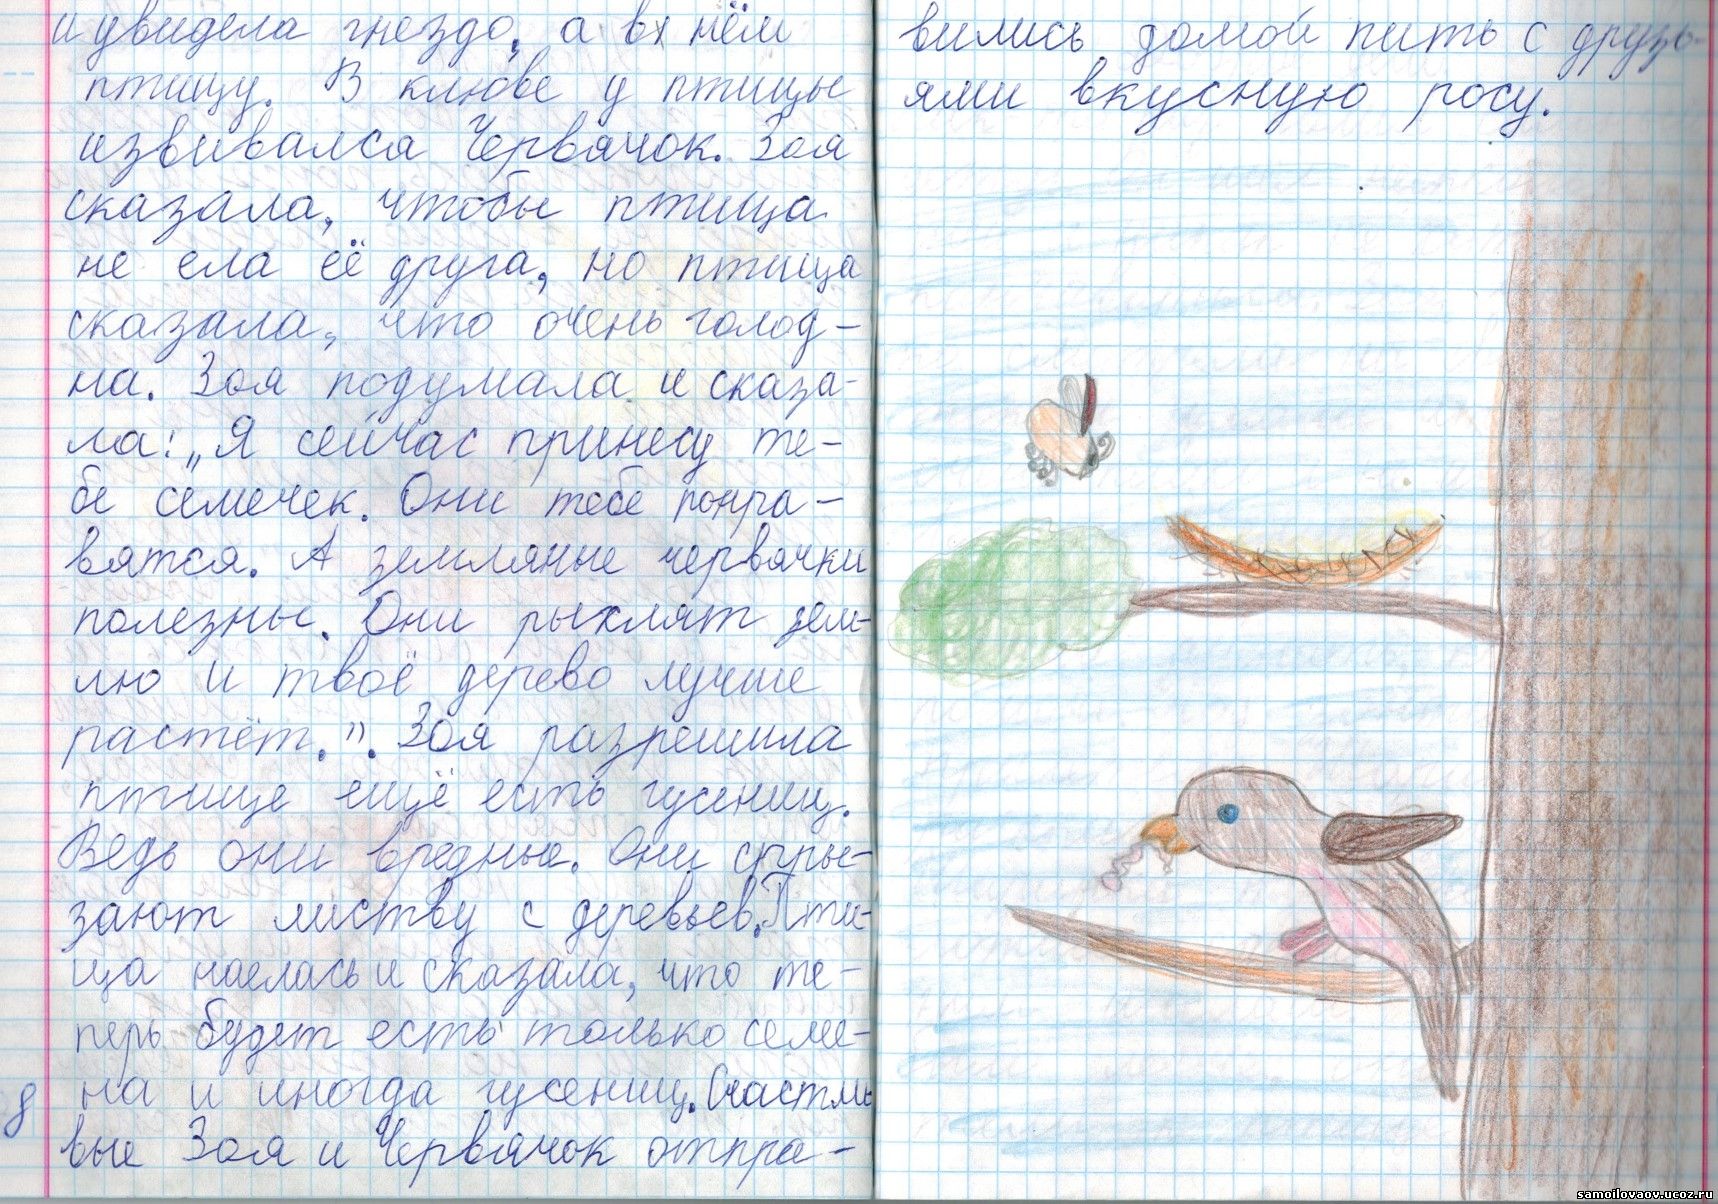 и увидела гнездо, а в нём
птицу. В клюве у птицы
извивался Червячок. Зоя
сказала, чтобы птица
не ела её друга, но птица
сказала, что очень голод-
на. Зоя подумала и сказа-
ла: „Я сейчас принесу те-
бе семечек. Они тебе понра-
вятся. А земляные червячки
полезны. Они рыхлят зем-
лю и твоё дерево лучше
растёт.". Зоя разрешила
птице ещё есть гусениц.
Ведь они вредные. Они сгры-
зают листву с деревьев. Пти-
ца наелась и сказала, что те-
перь будет есть только семе-
на и иногда гусениц. Счастли
вые Зоя и Червячок отпра-
8
вились домой пить с друзь-
ями вкусную росу.
samoilovaov.ucoz.ru